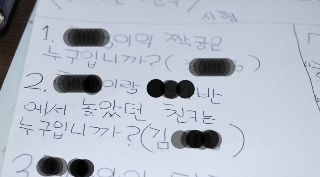 시험
1. 이의 짝궁은
누구입니까? ( )
2. 이랑 반
에서 놀았던 친구는
누구입니까? (김 )
3